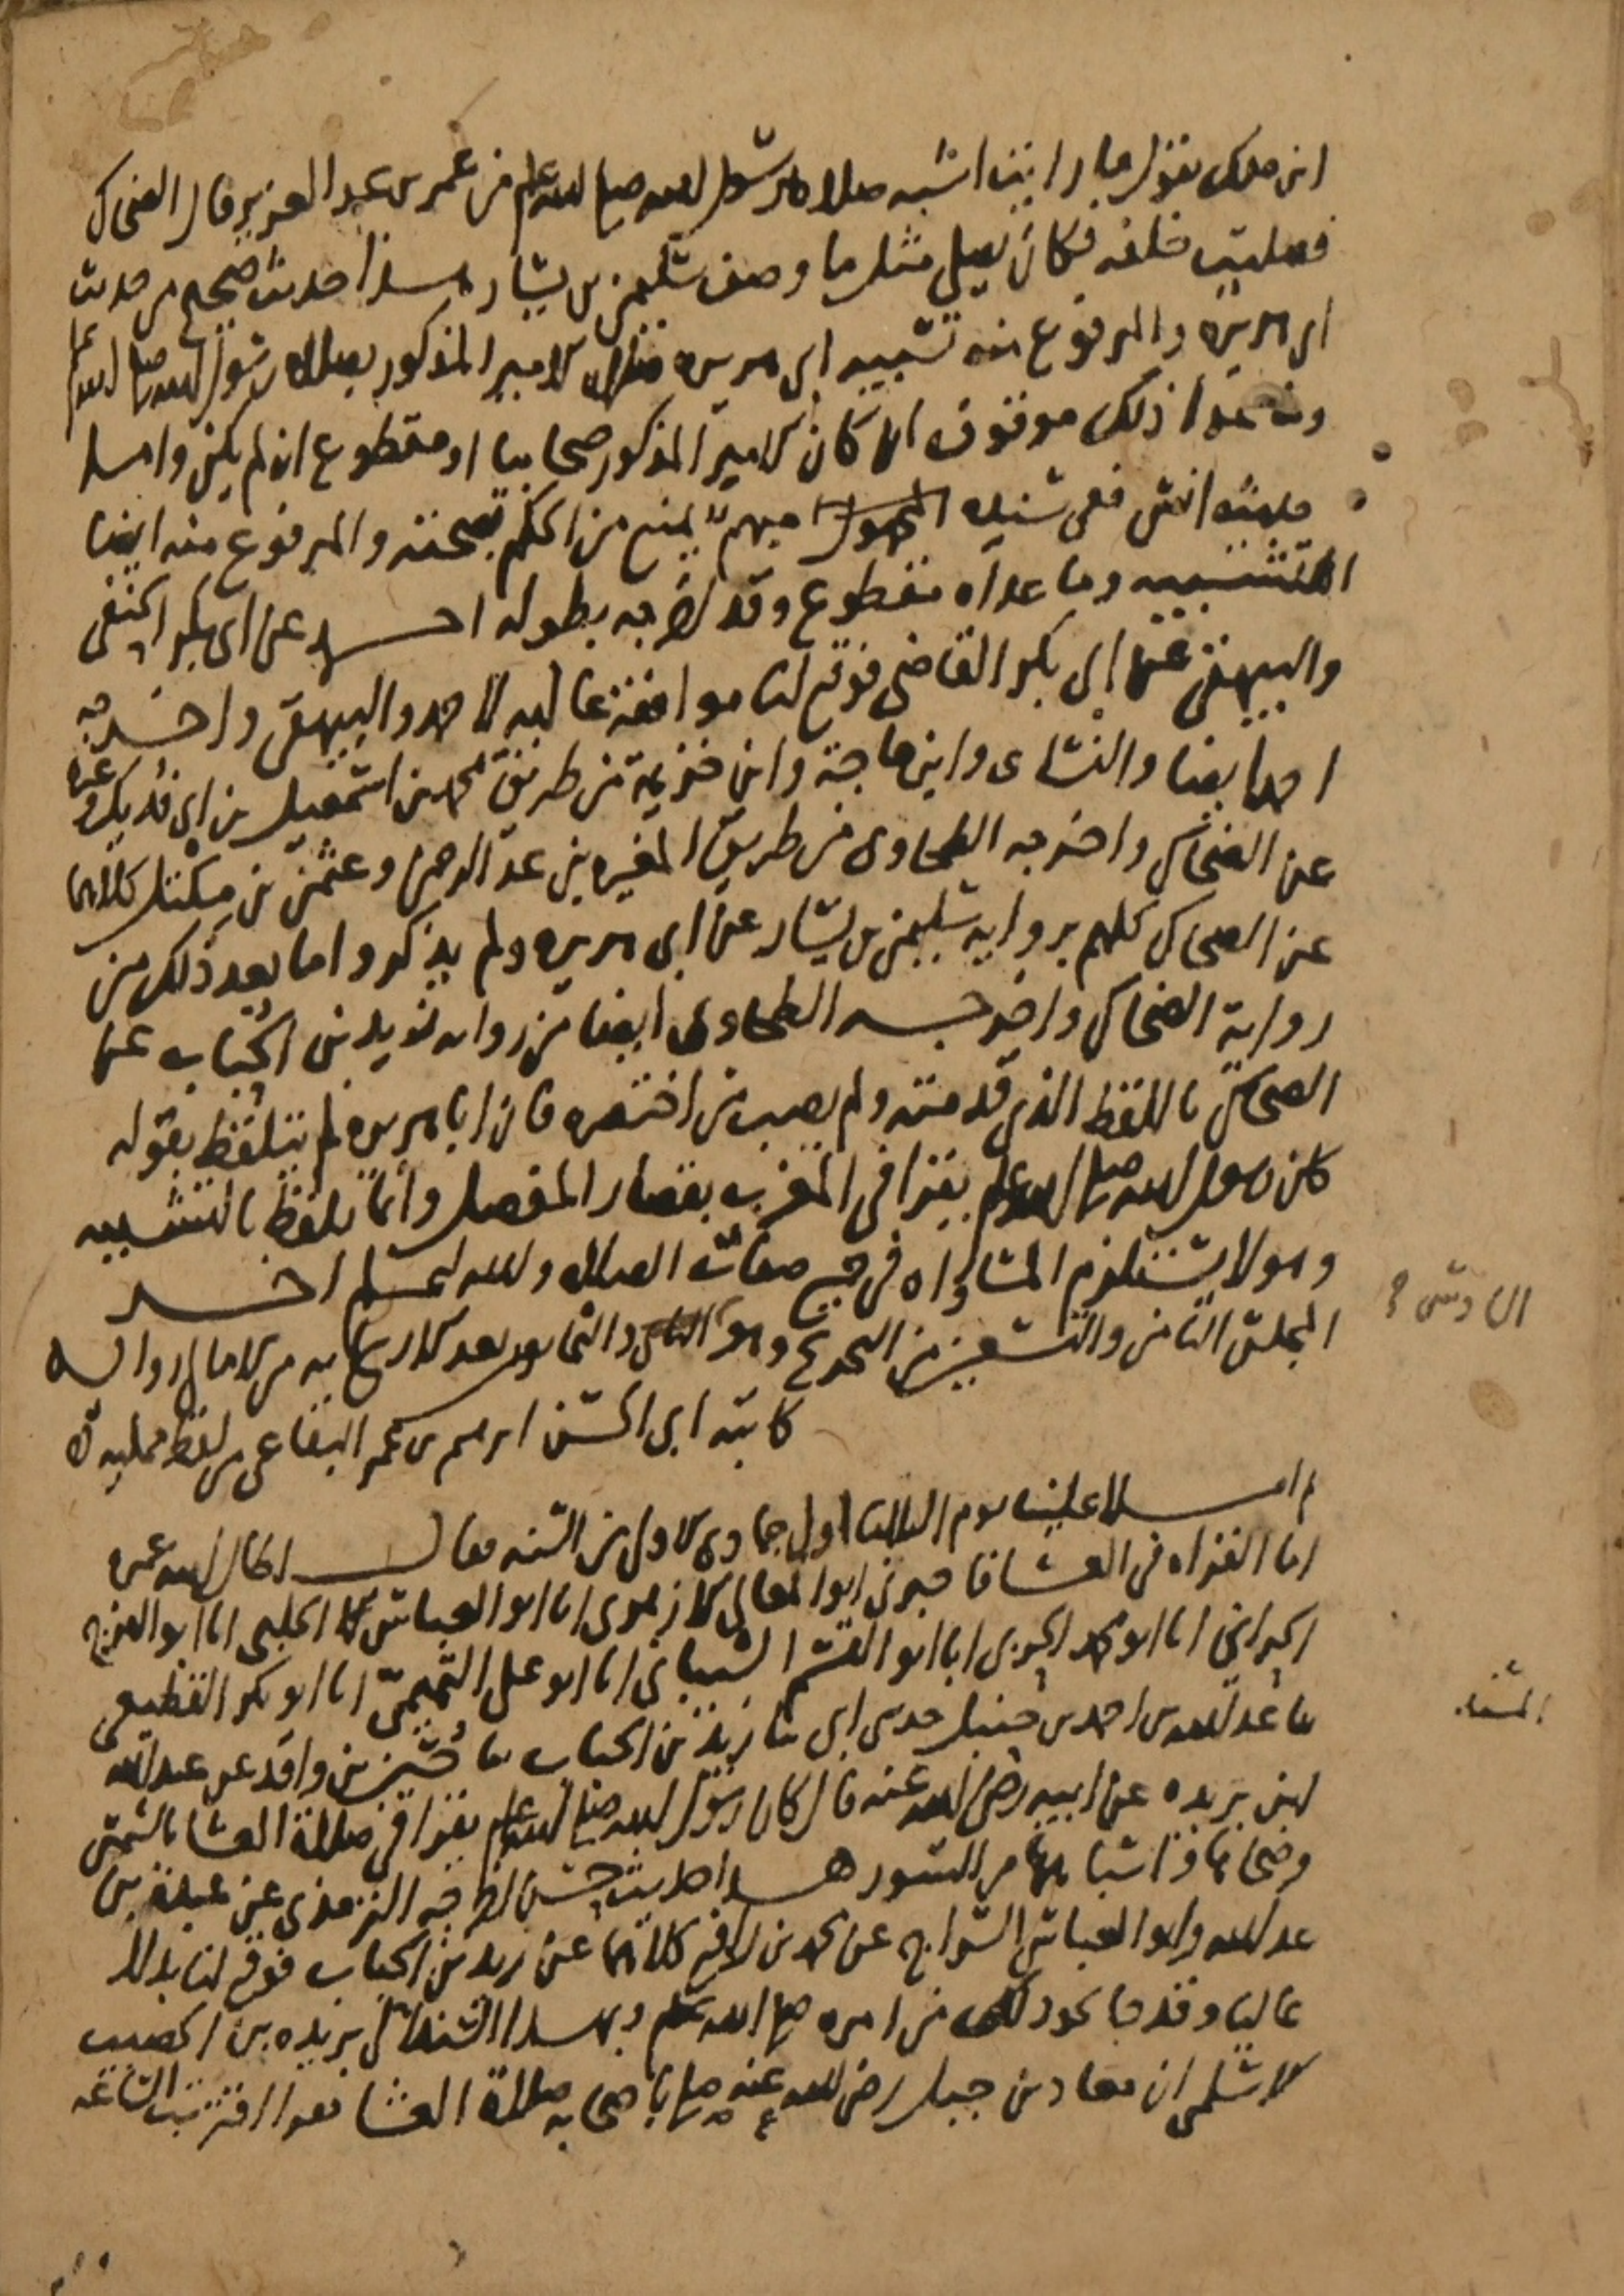 ابن ملك يقول ما رايت اشبه صلاة برسول الله صلى الله عليه وسلم من عمر بن عبد العزيز قال الضحاك
فصليت خلفه فكان يصلي مثل ما وصف سليمن بن يسار هذا حديث صحيح من حديث
ابي هريرة والمرفوع منه تشبيه ابي هريره صلاة الامير المذكور بصلاة رسول الله صلى الله عليه وسلم
وما عدا ذلك موقوف ان كان الامير المذكور صحابيا او مقطوع ان لم يكن واما
حديث انس ففي سنده مبهم يمنع من الحكم بصحته والمرفوع منه ايضا
التشبيه وما عداه مقطوع وقد اخرجه بطوله احمد عن ابي بكر الحنفي
والبيهقي عن ابي بكر القاضي فوقع لنا موافقة عاليه لاحمد والبيهقي واخرجه
احمد ايضا والنسائي وابن ماجة وابن خزيمة من طريق محمد بن اسمعيل بن ابي فديك
عن الضحاك واخرجه الطحاوي من طريق المغيره بن عبد الرحمن وعثمن بن مكتل كلاهما
عن الضحاك كلهم بروايه سليمن بن يسار عن ابي هريره ولم يذكروا ما بعد ذلك من
رواية الضحاك واخرجه الطحاوي ايضا من رواية زيد بن الحباب عن
الضحاك باللفظ الذي قدمته ولم يصب من اختصره فان ابا هريره لم يتلفظ بقوله
كان رسول الله صلى الله عليه وسلم يقرا في المغرب بقصار المفصل وانما تلفظ بالتشبيه
وهو لا يستلزم المساواه في جميع صفات الصلاه والله اعلم اخر
المجلس الثامن والتسعين من التخريج وهو والثمانون بعد الاربعمايه من الامالي رواية
السادس
كاتبه ابي الحسن ابرهيم بن عمر البقاعي من لفظ ممليه
ثم املا علينا يوم الثلاثا اول جمادى الاولى من السنه فقال اطال الله عمره
اما القراه في العشا فاخبرني ابو المعالي الازهري انا ابو العباس الحلبي انا ابو الفرج
الحراني انا ابو محمد الحربي انا ابو القسم الشيباني انا ابو علي التميمي انا ابو بكر القطيعي
ثنا عبد الله بن احمد بن حنبل حدثني ابي ثنا زيد بن الحباب ثنا حسين بن واقد عن عبد الله
ابن بريده عن ابيه رضي الله عنه قال كان رسول الله صلى الله عليه وسلم يقرا في صلاة العشا بالشمس
وضحاها واشباهها من السور هذا حديث حسن اخرجه الترمذي عن عبدة بن
عبد الله وابو العباس السراج عن محمد بن رافع كلاهما عن زيد بن الحباب فوقع لنا بدلا
عاليا وقد جا نحو ذلك من امره صلى الله عليه وسلم وبهذا السند الى بريده بن الحصيب
الاسلمي ان معاذ بن جبل رضي الله عنه صلى باصحابه صلاة العشا فقرا اقتربت الساعة